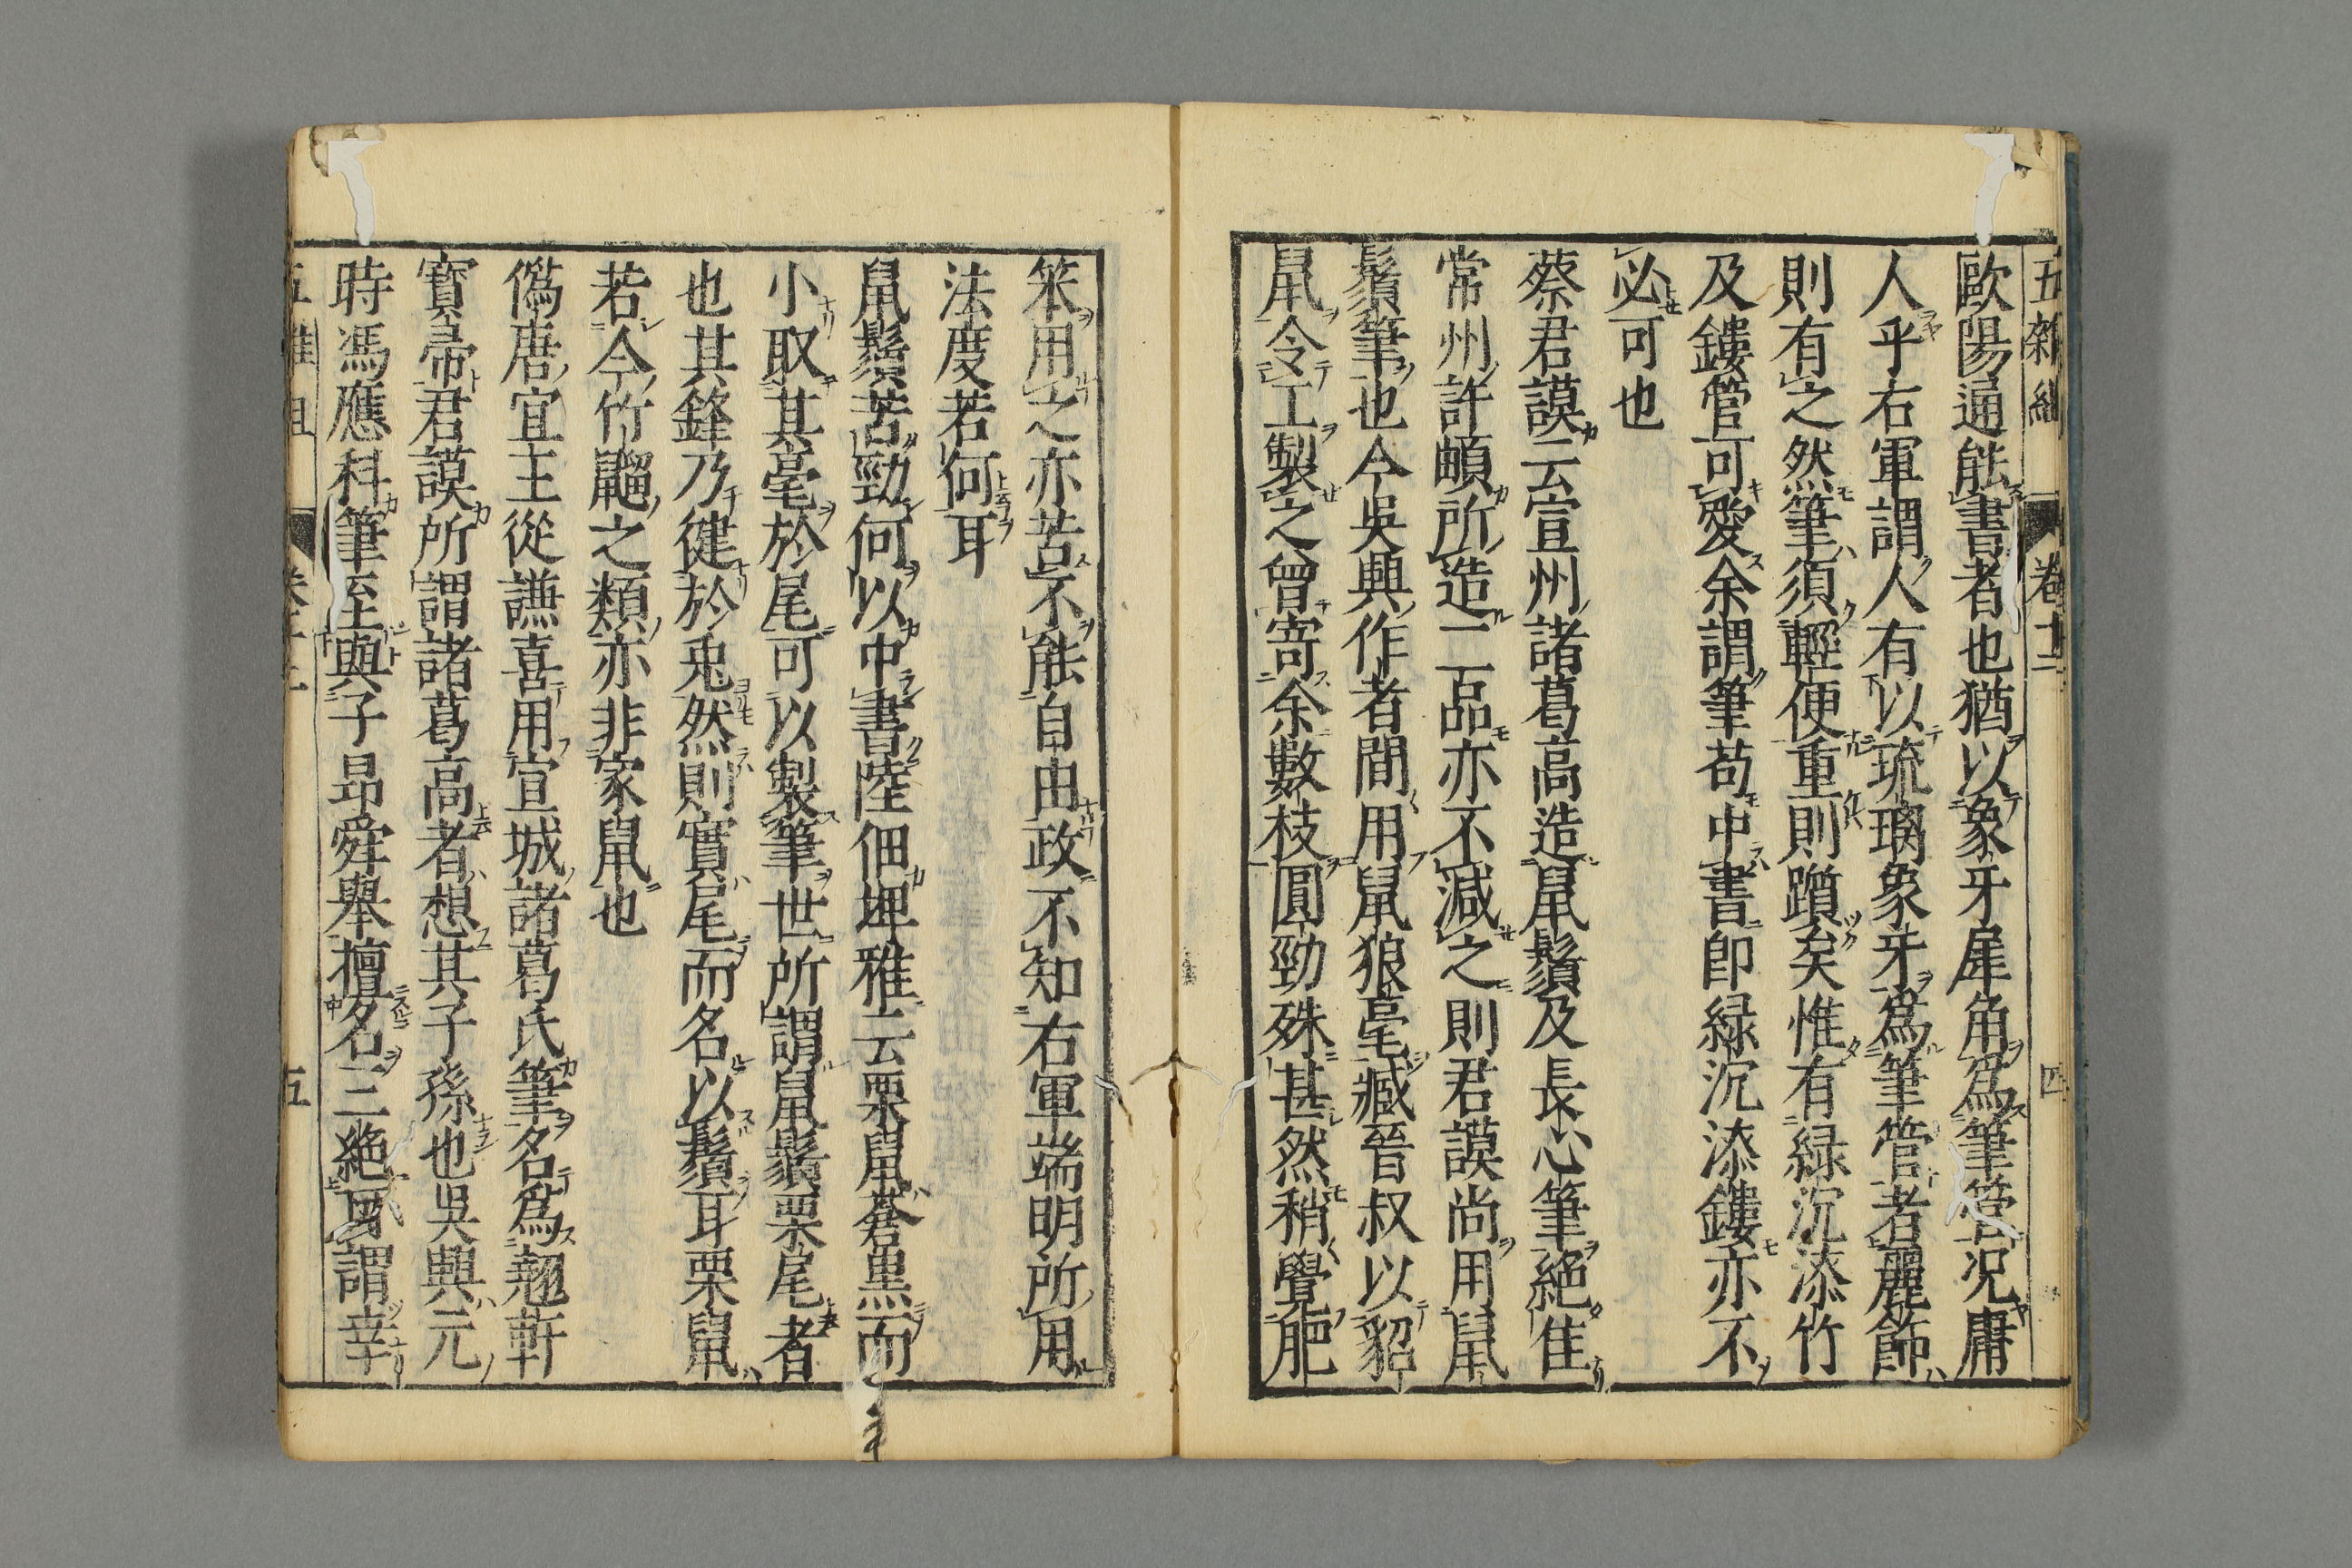 五雜組 卷十二 四
歐陽通能書者也猶以象牙犀角爲筆管况庸
人乎右軍謂人有以琉璃象牙爲筆管者麗飾
則有之然筆須輕便重則躓矣惟有緑沉漆竹
及鏤管可愛余謂筆苟中書即緑沉漆鏤亦不
必可也
蔡君謨云宣州諸葛高造鼠鬚及長心筆絶佳
常州許頔所造二品亦不減之則君謨尚用鼠
鬚筆也今吳興作者間用鼠狼毫臧晉叔以貂
鼠令工製之曾寄余數枝圓勁殊甚然稍覺肥
笨用之亦苦不能自由政不知右軍端明所用
法度若何耳
鼠鬚苦勁何以中書陸佃埤雅云栗鼠蒼黒而
小取其毫於尾可以製筆世所謂鼠鬚栗尾者
也其鋒乃健於兎然則實尾而名以鬚耳栗鼠
若今竹䶉之類亦非家鼠也
僞唐宜王從謙喜用宣城諸葛氏筆名爲翹軒
寳帚君謨所謂諸葛高者想其子孫也吳興元
時馮應科筆至與子昻舜舉擅名三絶
謂幸
五雜組 卷十二 五